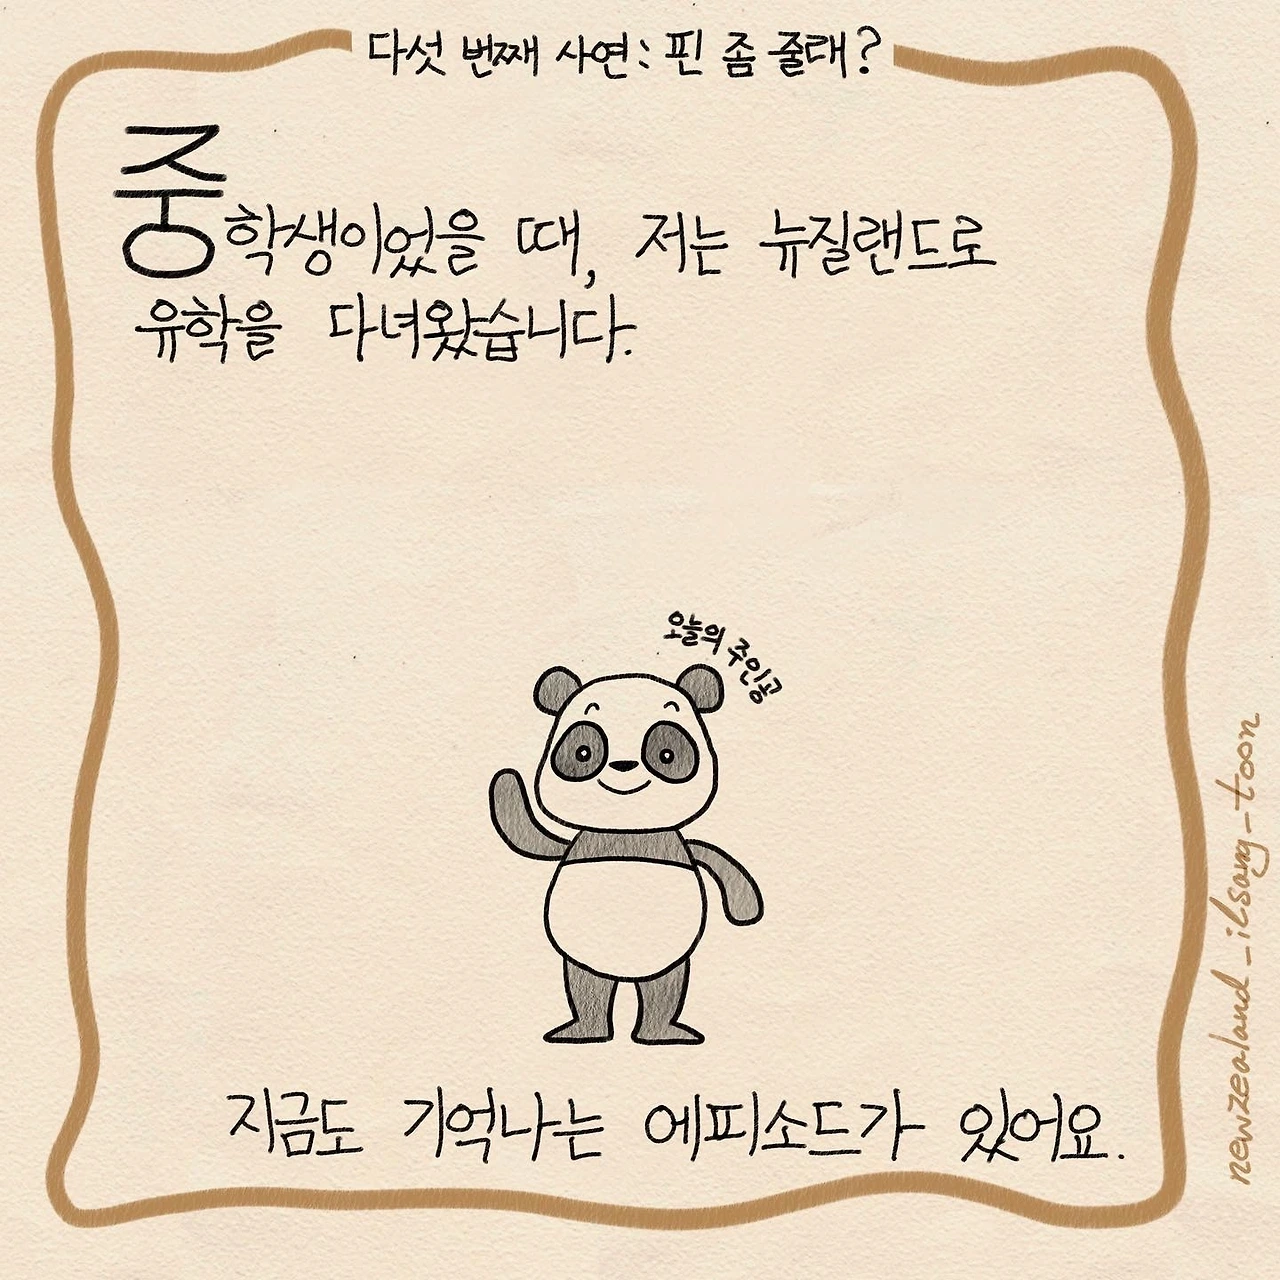 다섯 번째 사연: 핀 좀 줄래?
중학생이었을 때, 저는 뉴질랜드로
유학을 다녀왔습니다.
오늘의 주인공
지금도 기억나는 에피소드가 있어요.
newzealand_ilsang_toon